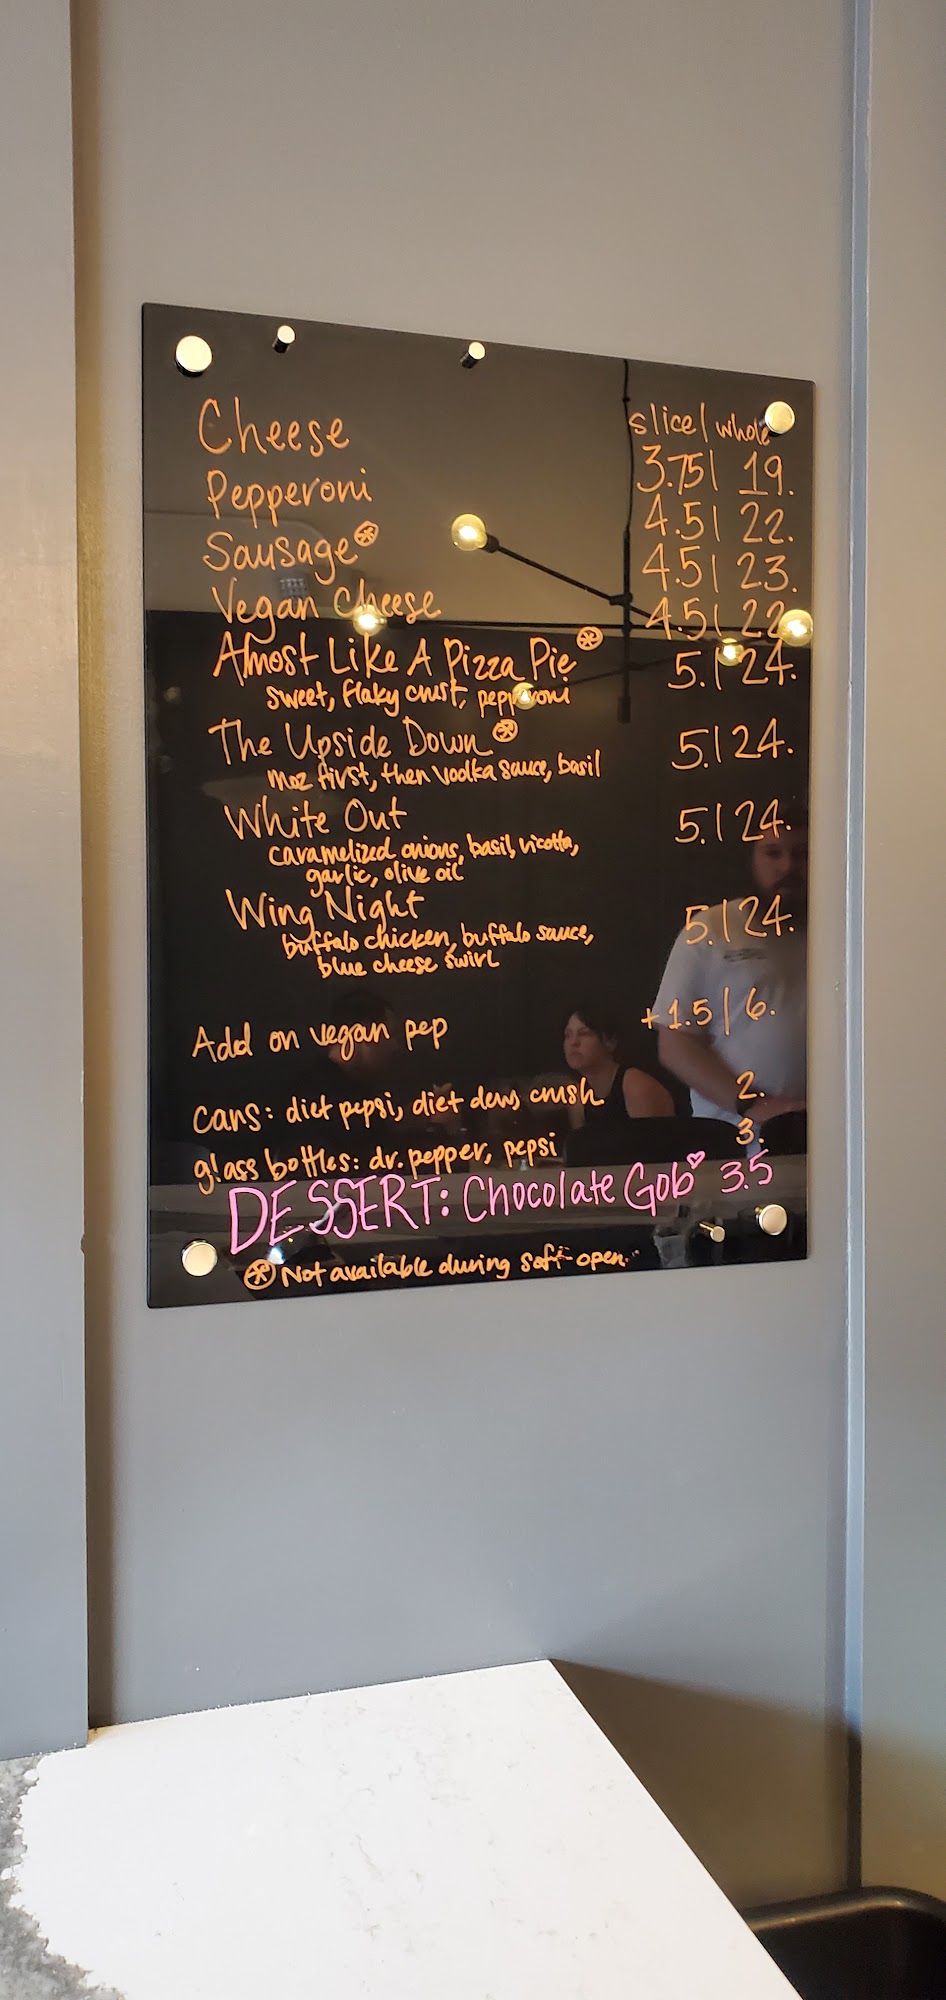 slice | whole
Cheese 3.75 | 19.
Pepperoni 4.5 | 22.
Sausage⊛ 4.5 | 23.
Vegan Cheese 4.5 | 22.
Almost Like A Pizza Pie⊛ 5. | 24.
sweet, flaky crust, pepperoni
The Upside Down⊛ 5. | 24.
moz first, then vodka sauce, basil
White Out 5. | 24.
caramelized onions, basil, ricotta,
garlic, olive oil
Wing Night 5. | 24.
buffalo chicken, buffalo sauce,
blue cheese swirl
Add on vegan pep +1.5 | 6.
cans: diet pepsi, diet dew, crush 2.
glass bottles: dr. pepper, pepsi 3.
DESSERT: Chocolate Gob♡ 3.5
⊛ Not available during soft-open.